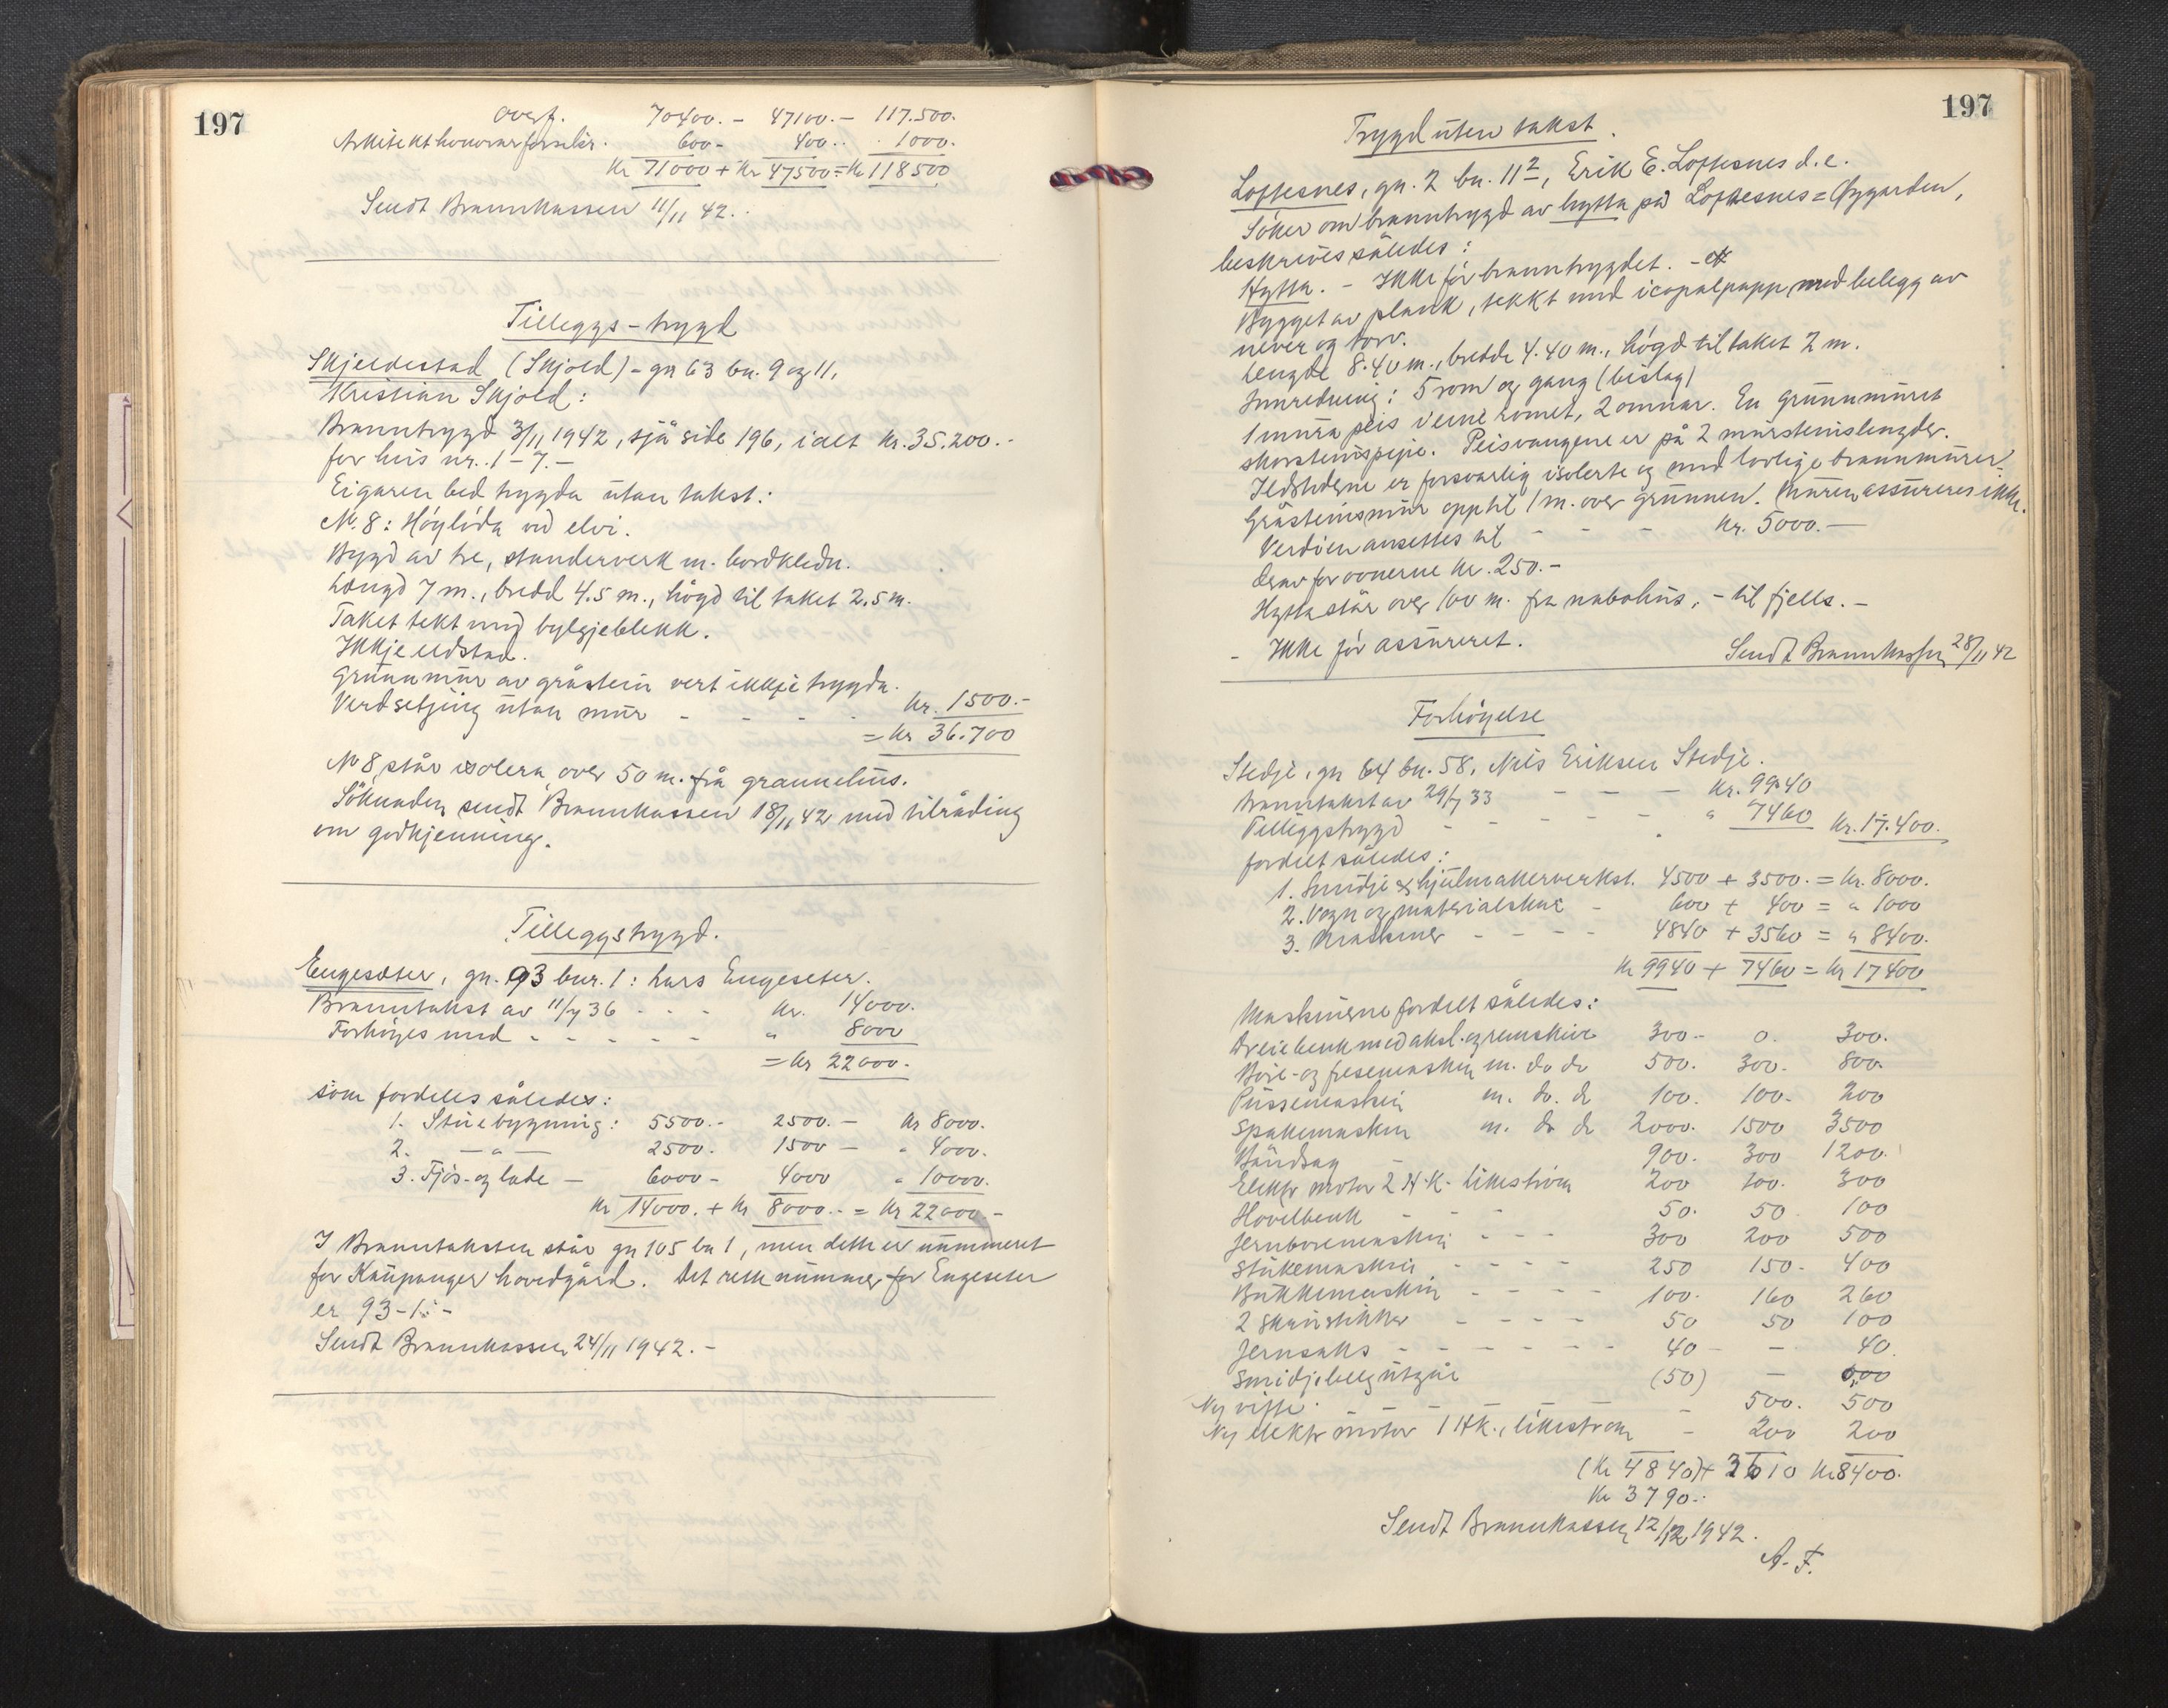 197
Overf. 70400.- 47100.- 117.500.
Arkitekthonorar forsikr. 600- 400.. 1000.
Kr 71000 + Kr 47500 = Kr 118500
Sendt Brannkassen 11/11 42.
Tilleggs-trygd
Skjeldestad (Skjold) - gn 63 bn. 9 og 11.
Kristian Skjold:
Branntrygd 3/11 1942, sjå side 196, ialt kr. 35.200.-
for hus nr. 1-7.-
Eigaren bed trygda utan takst:
Nr. 8: Høyløda ved elvi.
Bygd av tre, standerverk m. bordkledn.
Lengd 7 m., bredd 4.5 m., høgd til taket 2.5 m.
Taket tekt med bylgjeblekk.
Ikkje eldstad.
Grunnmur av gråstein vert ikkje trygda.
Verdsetjing utan mur - - - - kr. 1500.-
= Kr 36.700
Nr 8 står isolera, over 50 m. frå grannehus.
Søknaden sendt Brannkassen 18/11 42 med tilråding
om godkjenning.
Tilleggstrygd.
Engesæter, gn. 93 bnr. 1: Lars Engeseter.
Branntakst av 11/7 36 - - - kr. 14000.
Forhøyes med - - - - - " 8000
= Kr 22000.
som fordeles således:
1. Stuebygning: 5500.- 2500.- Kr 8000.
2. -"- 2500. 1500 - " 4000.
3. Fjøs- og lade - 6000- 4000 " 10000.
Kr 14000. + Kr 8000.- = Kr 22000.-
I Branntaksten står gn 105 bn 1, men dette er nummeret
for Kaupanger hovedgård. Det rette nummer for Engeseter
er 93-1.-
Sendt Brannkassen 24/11 1942.-
197
Trygd uten takst.
Loftesnes, gn. 2 bn. 11², Erik E. Loftesnes d.e.
Søker om branntrygd av hytta på Loftesnes=Øygarden,
beskrives således:
Hytta. - Ikke før branntrygdet. -
Bygget av plank, tekkt med icopalpapp med belegg av
never og torv.
Lengde 8.40 m., bredde 4.40 m., høgd til taket 2 m.
Innredning: 5 rom og gang (bislag)
1 mura peis i eine romet, 2 omnar. En grunnmuret
skorsteinspipe. Peisvangene er på 2 mursteinslengder.
Ildstedene er forsvarlig isolerte og med lovlige brannmurer.
Gråsteinsmur opptil 1 m. over grunnen. Muren assureres ikke.
Verdien ansettes til - - - kr. 5000.-
derav for ovnerne kr. 250.-
Hytta står over 100 m. fra nabohus, - til fjells.-
- Ikke før assureret.
Sendt Brannkassen 28/11 42
Forhøyelse
Stedje, gn 64 bn. 58, Nils Eriksen Stedje.
Branntakst av 29/7 33 - - - kr. 9940
Tilleggstrygd - - - - - " 7460 kr. 17.400.
fordelt således:
1. Smidje & hjulmakerverkst. 4500 + 3500. = Kr. 8000.
2. Vogn og materialskur - 600 + 400 = " 1000
3. Maskiner - - - - 4840 + 3560 = " 8400.
Kr 9940 + 7460 = Kr 17400
Maskinerne fordelt således:
Dreiebenk med aksl. og remskive 300.- 0. 300.
Bore- og fresemaskin m. do do 500. 300. 800.
Pussemaskin m. do. do 100. 100. 200
Spakemaskin m. do do 2000. 1500 3500
Båndsag - 900. 300 1200.
Elektr motor 2 H.K. likestrøm 200 100. 300
Høvelbenk - - - 50. 50 100
Jernboremaskin - - - 300 200 500
Stukemaskin - - - - 250 150- 400
Bukkemaskin - - - - 100. 160 260
2 skruestikker - - - - 50 50 100
Jernsaks - - - - - - 40 - - 40.
Smidjebelg utgår (50) -
Ny vifte - - - - - 500. 500
Ny elektr motor 1 HK., likestrøm - 200 200
(Kr 4840)+ 3610 Kr 8400.
Kr 3790..
Sendt Brannkassen 12/12 1942.
A. F.